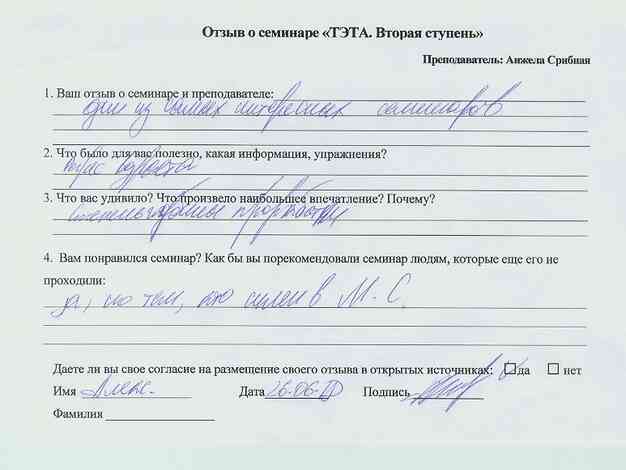 Отзыв о семинаре «ТЭТА. Вторая ступень»
Преподаватель: Анжела Срибная
1. Ваш отзыв о семинаре и преподавателе:
один из самых интересных семинаров
2. Что было для вас полезно, какая информация, упражнения?
3. Что вас удивило? Что произвело наибольшее впечатление? Почему?
4. Вам понравился семинар? Как бы вы порекомендовали семинар людям, которые еще его не
проходили:
да, но тем, кто силен в М. С.
Даете ли вы свое согласие на размещение своего отзыва в открытых источниках: да нет
Имя Алекс. Дата Подпись
Фамилия